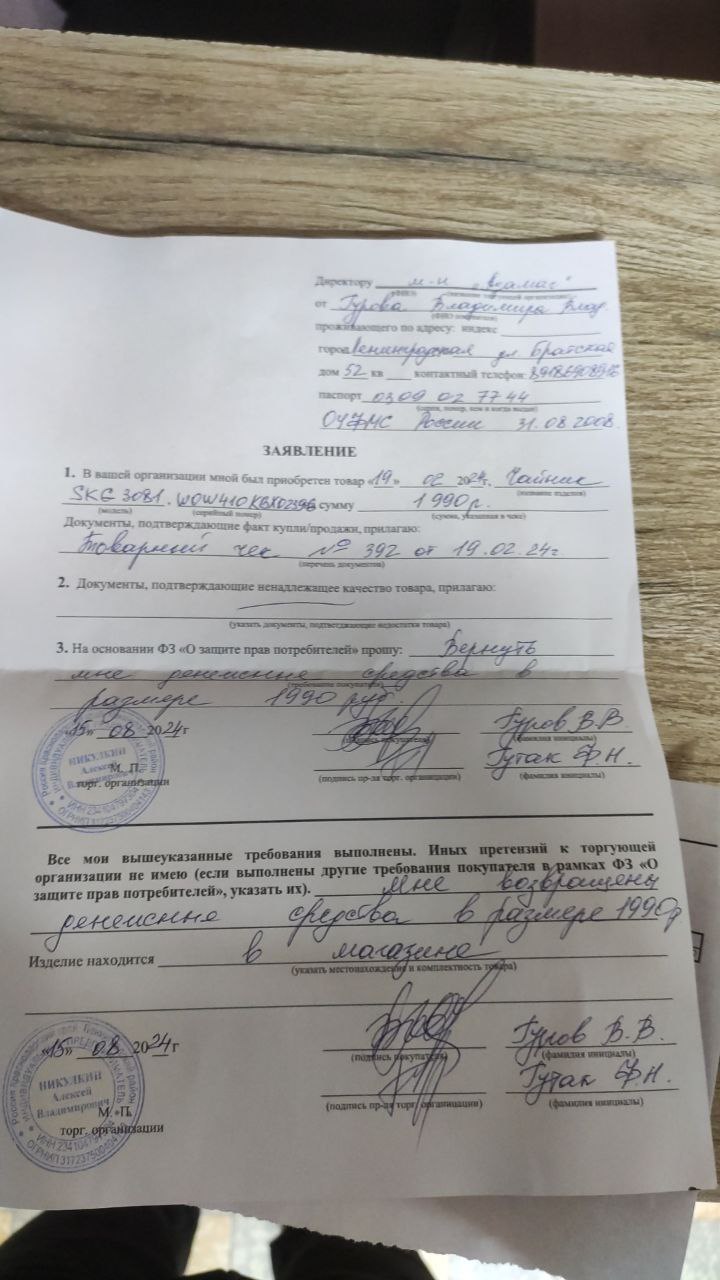 Директору м-н "Адамас"
от Гурова Владимира Влад.
(ФИО покупателя)
проживающего по адресу: индекс
город Ленинградская ул Братская
дом 52 кв контактный телефон:
паспорт 03 09 02 77 44
(серия, номер, кем и когда выдан)
ОУФМС России 31.08.2008.
ЗАЯВЛЕНИЕ
1. В вашей организации мной был приобретен товар «19» 02 2024г, Чайник
(название изделия)
SKG 3081, сумму 1990р.
(модель) (серийный номер) (сумма, указанная в чеке)
Документы, подтверждающие факт купли/продажи, прилагаю:
Товарный чек № 392 от 19.02.24г
(перечень документов)
2. Документы, подтверждающие ненадлежащее качество товара, прилагаю:
(указать документы, подтверждающие недостатки товара)
3. На основании ФЗ «О защите прав потребителей» прошу: Вернуть
мне денежные средства в
(требование покупателя)
размере 1990 руб.
«15» 08 2024г Гуров В.В.
(подпись покупателя) (фамилия инициалы)
Гутак Ф.Н.
М. П. (подпись пр-ля торг. организации) (фамилия инициалы)
торг. организации
НИКУЛКИН
Алексей
Владимирович
Все мои вышеуказанные требования выполнены. Иных претензий к торгующей
организации не имею (если выполнены другие требования покупателя в рамках ФЗ «О
защите прав потребителей», указать их). Мне возвращены
денежные средства в размере 1990р
Изделие находится в магазине
(указать местонахождение и комплектность товара)
«15» 08 2024г Гуров В.В.
(подпись покупателя) (фамилия инициалы)
Гутак Ф.Н.
М. П. (подпись пр-ля торг. организации) (фамилия инициалы)
торг. организации
НИКУЛКИН
Алексей
Владимирович